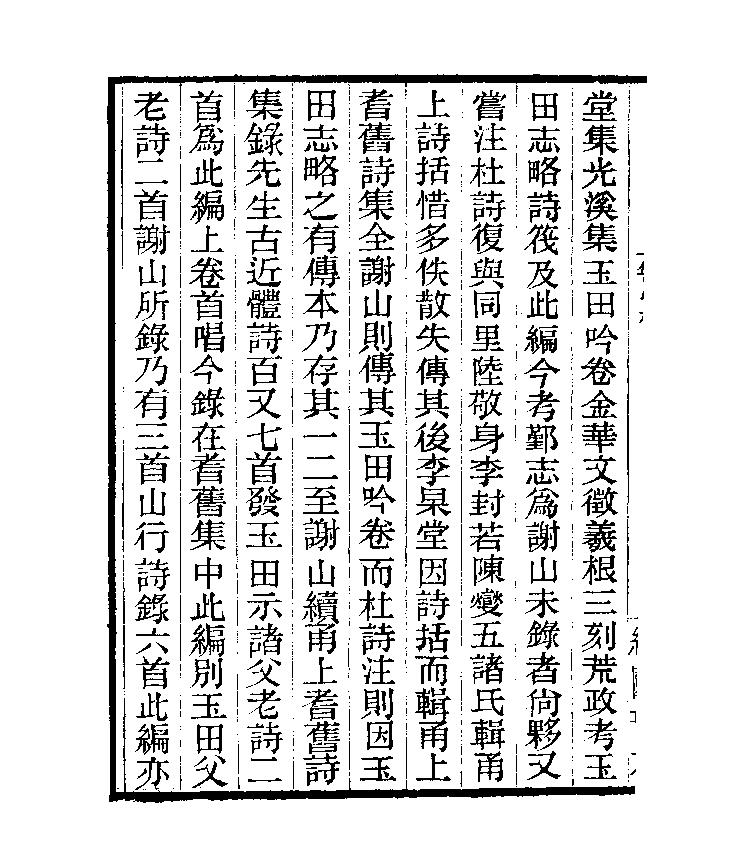 堂集光溪集玉田吟卷金華文徵義根三刻荒政考玉
田志略詩筏及此編今考鄞志爲謝山未錄者尙夥又
嘗注杜詩復與同里陸敬身李封若陳爕五諸氏輯甬
上詩括惜多佚散失傳其後李杲堂因詩括而輯甬上
耆舊詩集全謝山則傳其玉田吟卷而杜詩注則因玉
田志略之有傳本乃存其一二至謝山續甬上耆舊詩
集錄先生古近體詩百又七首發玉田示諸父老詩二
首爲此編上卷首唱今錄在耆舊集中此編別玉田父
老詩二首謝山所錄乃有三首山行詩錄六首此編亦